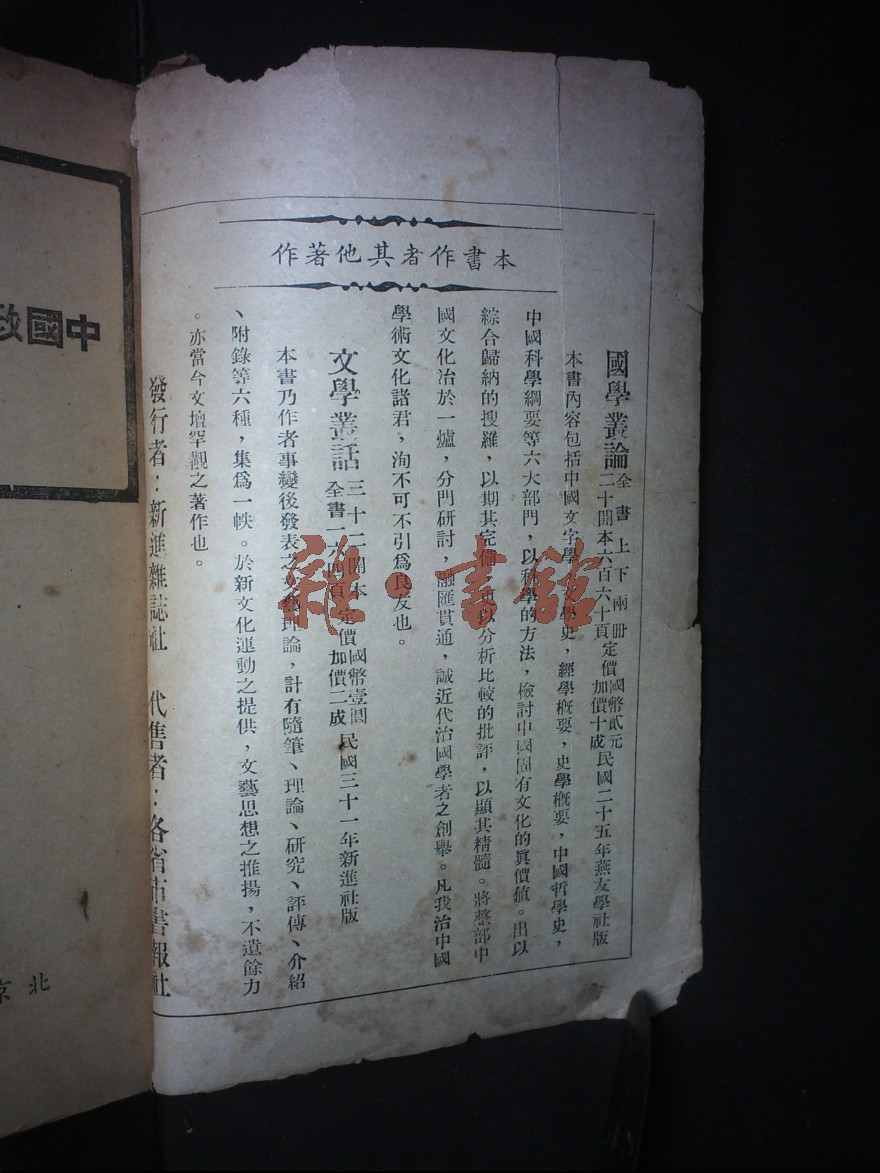 本書作者其他著作
國學叢論 全書上下兩冊 二十開本六百六十頁 定價國幣貳元 加價十成 民國二十五年燕友學社版
本書內容包括中國文字學，學史，經學概要，史學概要，中國哲學史，
中國科學綱要等六大部門，以科學的方法，檢討中國固有文化的眞價値。出以
綜合歸納的搜羅，以期其完備，再以分析比較的批評，以顯其精髓。將整部中
國文化冶於一爐，分門研討，融匯貫通，誠近代治國學者之創舉。凡我治中國
學術文化諸君，洵不可不引爲良友也。
文學叢話 三十二開本 全書一六四頁 定價國幣壹圓 加價二成 民國三十一年新進社版
本書乃作者事變後發表之文藝理論，計有隨筆、理論、研究、評傳、介紹
、附錄等六種，集爲一帙。於新文化運動之提供，文藝思想之推揚，不遺餘力
。亦當今文壇罕觀之著作也。
發行者：新進雜誌社 代售者：各省市書報社
中國政
北京
雜·書館